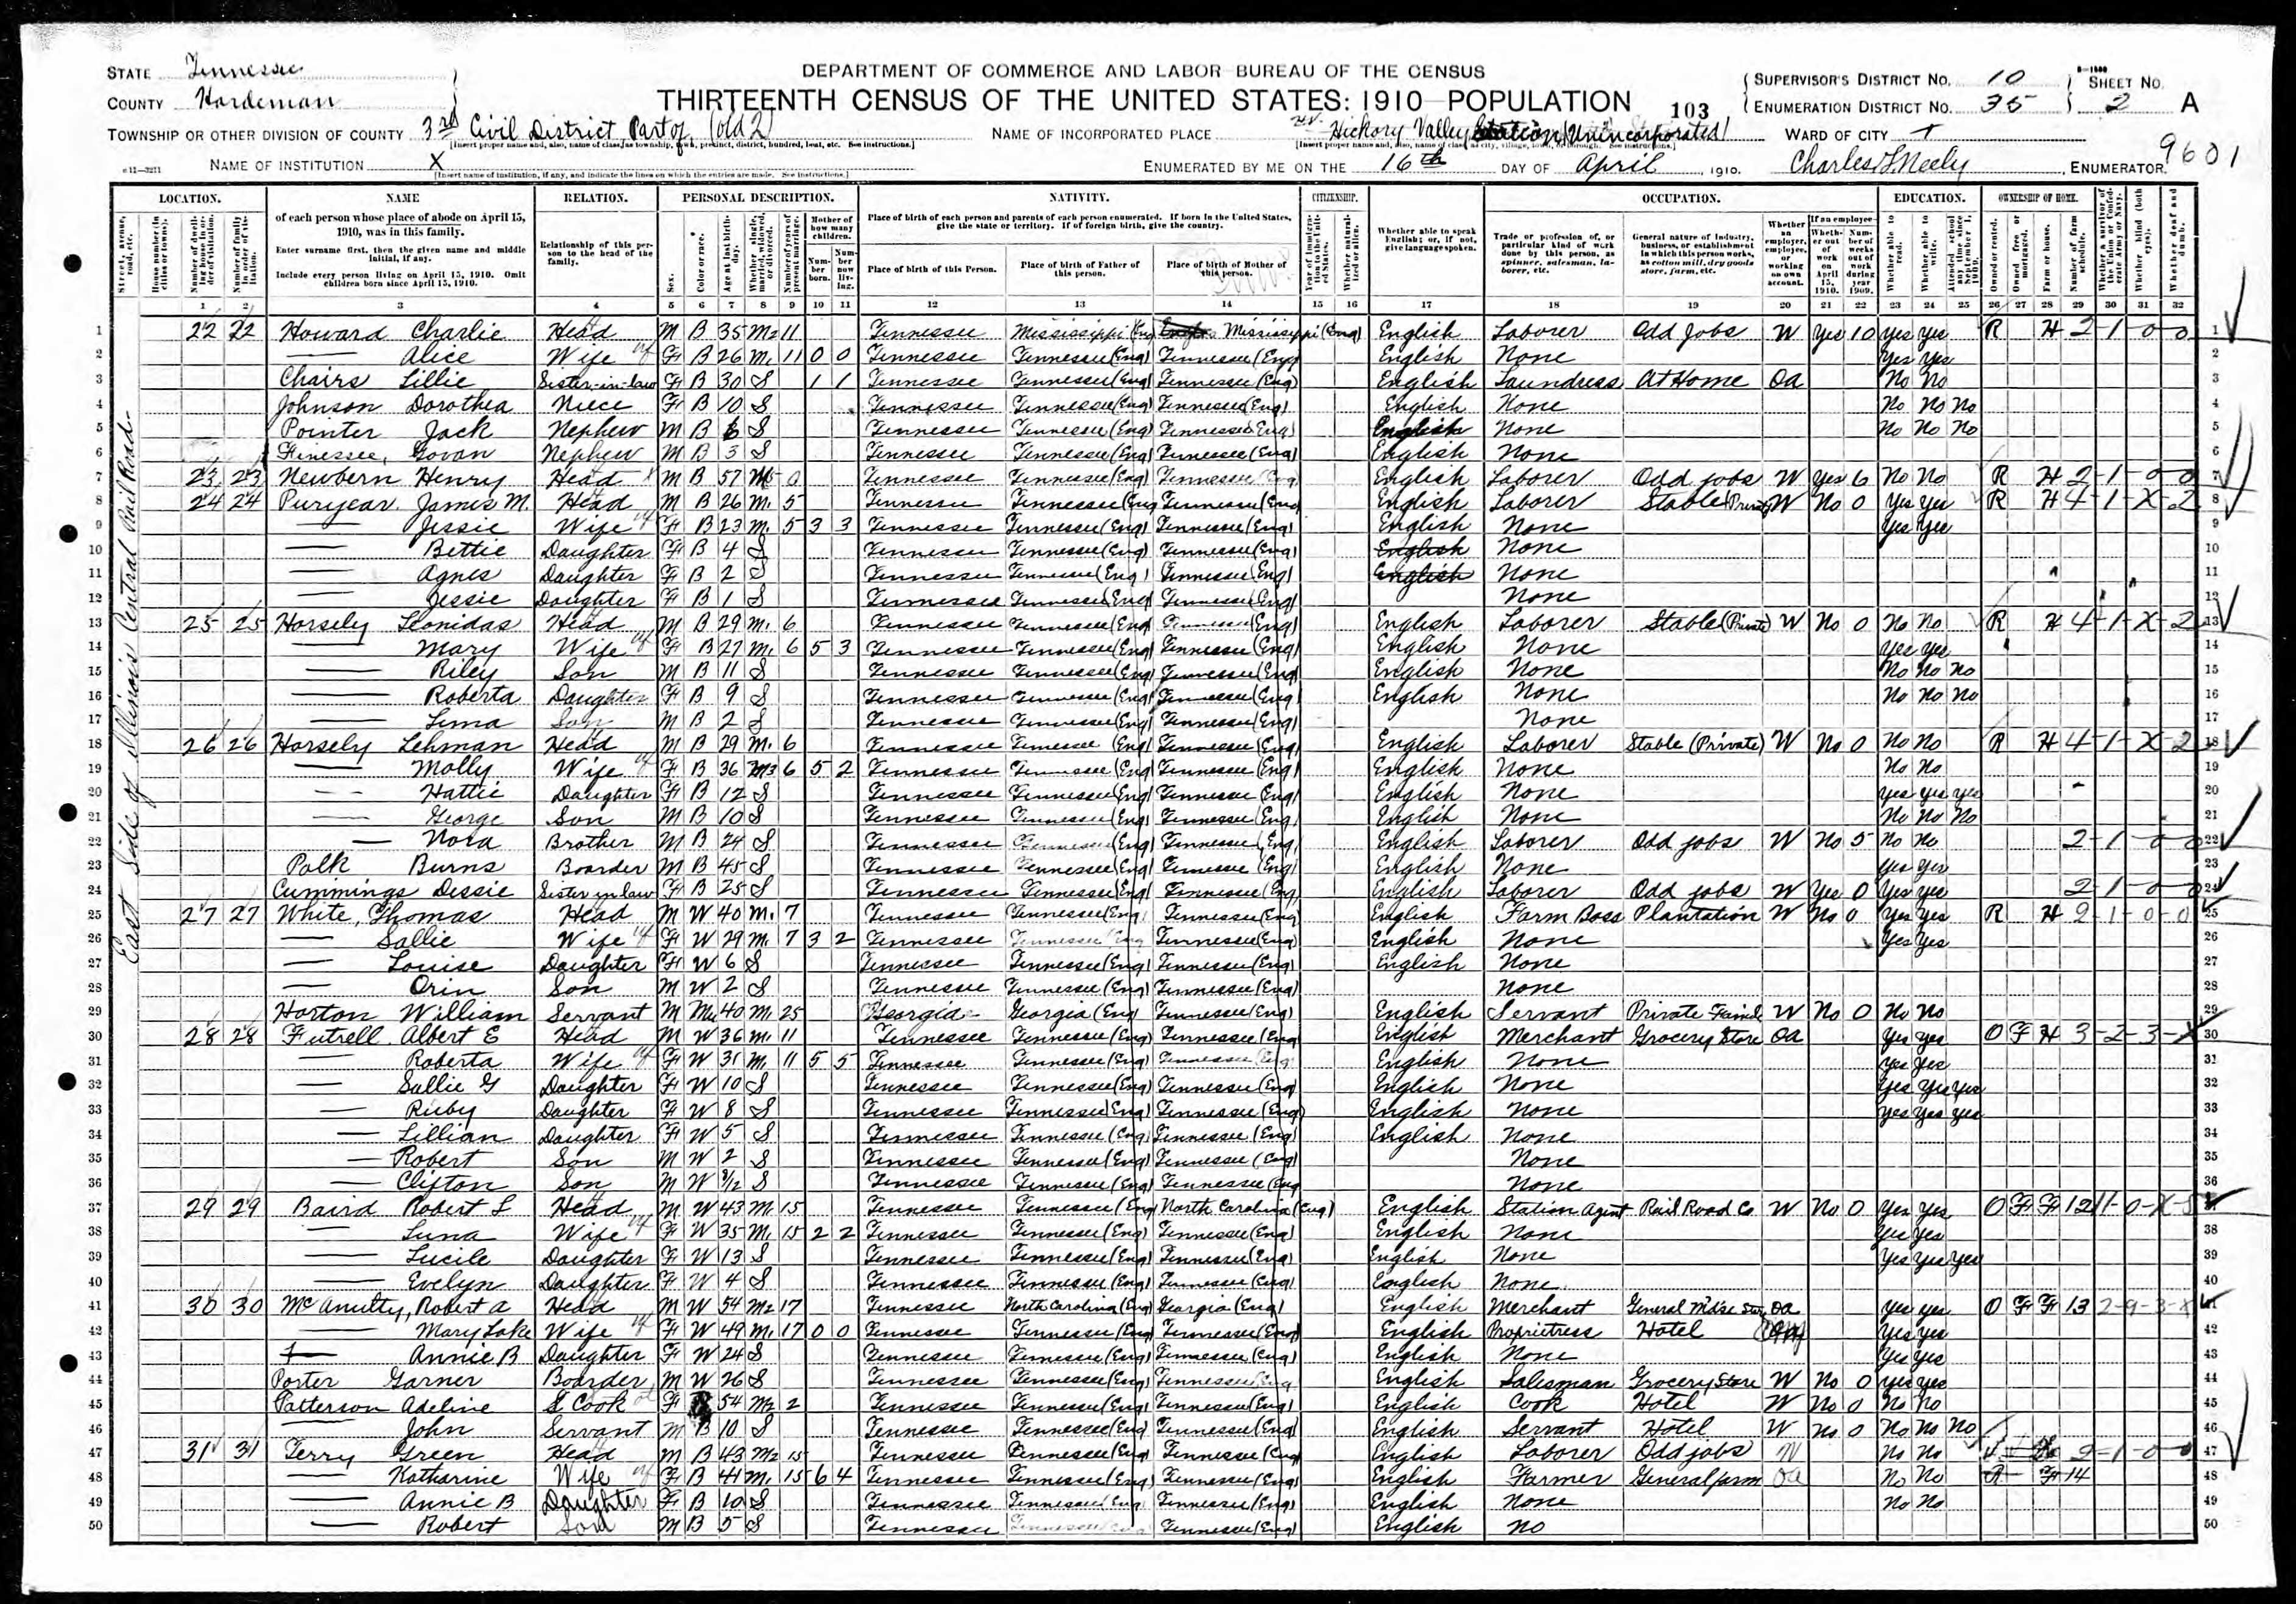 STATE Tennessee
COUNTY Hardeman
DEPARTMENT OF COMMERCE AND LABOR—BUREAU OF THE CENSUS
THIRTEENTH CENSUS OF THE UNITED STATES: 1910—POPULATION
103
SUPERVISOR'S DISTRICT NO. 10
ENUMERATION DISTRICT NO. 35
SHEET NO. 2 A
TOWNSHIP OR OTHER DIVISION OF COUNTY 3rd Civil District Part of (old 2)
NAME OF INCORPORATED PLACE Hickory Valley (Unincorporated)
WARD OF CITY
NAME OF INSTITUTION X
ENUMERATED BY ME ON THE 16th DAY OF April, 1910. Charles L. Neely, ENUMERATOR.
9601
LOCATION. NAME RELATION. PERSONAL DESCRIPTION. NATIVITY. CITIZENSHIP. OCCUPATION. EDUCATION. OWNERSHIP OF HOME.
of each person whose place of abode on April 15, 1910, was in this family.
Enter surname first, then the given name and middle initial, if any.
Include every person living on April 15, 1910. Omit children born since April 15, 1910.
Relationship of this person to the head of the family.
Place of birth of each person and parents of each person enumerated. If born in the United States, give the state or territory. If of foreign birth, give the country.
Place of birth of this Person. Place of birth of Father of this person. Place of birth of Mother of this person.
Whether able to speak English; or, if not, give language spoken.
Trade or profession of, or particular kind of work done by this person, as spinner, salesman, laborer, etc.
General nature of industry, business, or establishment in which this person works, as cotton mill, dry goods store, farm, etc.
1 2 3 4 5 6 7 8 9 10 11 12 13 14 15 16 17 18 19 20 21 22 23 24 25 26 27 28 29 30 31 32
East Side of Illinois Central Rail Road
1 22 22 Howard Charlie Head M B 35 M2 11 Tennessee Mississippi (Eng) Mississippi (Eng) English Laborer Odd Jobs W Yes 10 Yes Yes R H 2-1-0-0 1
2 — Alice Wife F B 26 M1 11 0 0 Tennessee Tennessee (Eng) Tennessee (Eng) English None Yes Yes 2
3 Chairs Lillie Sister-in-law F B 30 S 1 1 Tennessee Tennessee (Eng) Tennessee (Eng) English Laundress At Home OA No No 3
4 Johnson Dorothea Niece F B 10 S Tennessee Tennessee (Eng) Tennessee (Eng) English None No No No 4
5 Pointer Jack Nephew M B 6 S Tennessee Tennessee (Eng) Tennessee (Eng) English None No No No 5
6 Govan Nephew M B 3 S Tennessee Tennessee (Eng) Tennessee (Eng) English None 6
7 23 23 Newbern Henry Head M B 57 0 Tennessee Tennessee (Eng) Tennessee (Eng) English Laborer Odd jobs W Yes 6 No No R H 2-1-0-0 7
8 24 24 Puryear James M. Head M B 26 M1 5 Tennessee Tennessee (Eng) Tennessee (Eng) English Laborer Stable (Private) W No 0 Yes Yes R H 4-1-X-2 8
9 — Jessie Wife F B 23 M1 5 3 3 Tennessee Tennessee (Eng) Tennessee (Eng) English None Yes Yes 9
10 — Bettie Daughter F B 4 S Tennessee Tennessee (Eng) Tennessee (Eng) English None 10
11 — Agnes Daughter F B 2 S Tennessee Tennessee (Eng) Tennessee (Eng) English None 11
12 — Jessie Daughter F B 1 S Tennessee Tennessee (Eng) Tennessee (Eng) None 12
13 25 25 Horsely Leonidas Head M B 29 M1 6 Tennessee Tennessee (Eng) Tennessee (Eng) English Laborer Stable (Private) W No 0 No No R H 4-1-X-2 13
14 — Mary Wife F B 27 M1 6 5 3 Tennessee Tennessee (Eng) Tennessee (Eng) English None Yes Yes 14
15 — Riley Son M B 11 S Tennessee Tennessee (Eng) Tennessee (Eng) English None No No No 15
16 — Roberta Daughter F B 9 S Tennessee Tennessee (Eng) Tennessee (Eng) English None No No No 16
17 — Lima Son M B 2 S Tennessee Tennessee (Eng) Tennessee (Eng) None 17
18 26 26 Horsely Lehman Head M B 29 M1 6 Tennessee Tennessee (Eng) Tennessee (Eng) English Laborer Stable (Private) W No 0 No No R H 4-1-X-2 18
19 — Molly Wife F B 36 M3 6 5 2 Tennessee Tennessee (Eng) Tennessee (Eng) English None No No 19
20 — Hattie Daughter F B 12 S Tennessee Tennessee (Eng) Tennessee (Eng) English None Yes Yes Yes 20
21 — George Son M B 10 S Tennessee Tennessee (Eng) Tennessee (Eng) English None No No No 21
22 — Nora Brother M B 24 S Tennessee Tennessee (Eng) Tennessee (Eng) English Laborer Odd jobs W No 5 No No 2-1-0-0 22
23 Polk Burns Boarder M B 45 S Tennessee Tennessee (Eng) Tennessee (Eng) English None Yes Yes 23
24 Cummings Dessie Sister in law F B 25 S Tennessee Tennessee (Eng) Tennessee (Eng) English Laborer Odd jobs W Yes 0 Yes Yes 2-1-0-0 24
25 27 27 White, Thomas Head M W 40 M1 7 Tennessee Tennessee (Eng) Tennessee (Eng) English Farm Boss Plantation W No 0 Yes Yes R H 2-1-0-0 25
26 — Sallie Wife F W 29 M1 7 3 2 Tennessee Tennessee (Eng) Tennessee (Eng) English None Yes Yes 26
27 — Louise Daughter F W 6 S Tennessee Tennessee (Eng) Tennessee (Eng) English None 27
28 — Orin Son M W 2 S Tennessee Tennessee (Eng) Tennessee (Eng) None 28
29 Horton William Servant M Mu 40 M1 25 Georgia Georgia (Eng) Tennessee (Eng) English Servant Private Family W No 0 No No 29
30 28 28 Futrell Albert E Head M W 36 M1 11 Tennessee Tennessee (Eng) Tennessee (Eng) English Merchant Grocery Store OA Yes Yes O F H 3-2-3-X 30
31 — Roberta Wife F W 31 M1 11 5 5 Tennessee Tennessee (Eng) Tennessee (Eng) English None Yes Yes 31
32 — Sallie G Daughter F W 10 S Tennessee Tennessee (Eng) Tennessee (Eng) English None Yes Yes Yes 32
33 — Ruby Daughter F W 8 S Tennessee Tennessee (Eng) Tennessee (Eng) English None Yes Yes Yes 33
34 — Lillian Daughter F W 5 S Tennessee Tennessee (Eng) Tennessee (Eng) English None 34
35 — Robert Son M W 2 S Tennessee Tennessee (Eng) Tennessee (Eng) None 35
36 — Clifton Son M W 8/12 S Tennessee Tennessee (Eng) Tennessee (Eng) None 36
37 29 29 Baird Robert L Head M W 43 M1 15 Tennessee Tennessee (Eng) North Carolina (Eng) English Station Agent Rail Road Co W No 0 Yes Yes O F F 12
38 — Luna Wife F W 35 M1 15 2 2 Tennessee Tennessee (Eng) Tennessee (Eng) English None Yes Yes 38
39 — Lucile Daughter F W 13 S Tennessee Tennessee (Eng) Tennessee (Eng) English None Yes Yes Yes 39
40 — Evelyn Daughter F W 4 S Tennessee Tennessee (Eng) Tennessee (Eng) English None 40
41 30 30 McAnulty, Robert A Head M W 54 M2 17 Tennessee North Carolina (Eng) Georgia (Eng) English Merchant General Mdse Store OA Yes Yes O F F 13
42 — Mary Lake Wife F W 49 M1 17 0 0 Tennessee Tennessee (Eng) Tennessee (Eng) English Proprietress Hotel Yes Yes 42
43 — Annie B Daughter F W 24 S Tennessee Tennessee (Eng) Tennessee (Eng) English None Yes Yes 43
44 Porter Garner Boarder M W 26 S Tennessee Tennessee (Eng) Tennessee (Eng) English Salesman Grocery Store W No 0 Yes Yes 44
45 Patterson Adeline Cook F B 54 M2 2 Tennessee Tennessee (Eng) Tennessee (Eng) English Cook Hotel W No 0 No No 45
46 — John Servant M B 10 S Tennessee Tennessee (Eng) Tennessee (Eng) English Servant Hotel W No 0 No No No 46
47 31 31 Terry Green Head M B 43 M2 15 Tennessee Tennessee (Eng) Tennessee (Eng) English Laborer Odd jobs W No No 2-1-0-0 47
48 — Katharine Wife F B 41 M1 15 6 4 Tennessee Tennessee (Eng) Tennessee (Eng) English Farmer General farm OA No No R F 14 48
49 — Annie B Daughter F B 10 S Tennessee Tennessee (Eng) Tennessee (Eng) English None No No 49
50 — Robert Son M B 5 S Tennessee Tennessee (Eng) Tennessee (Eng) English No 50